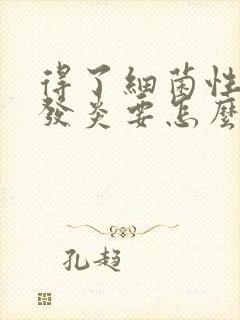 得了細菌性
發炎要怎麼
孔趙